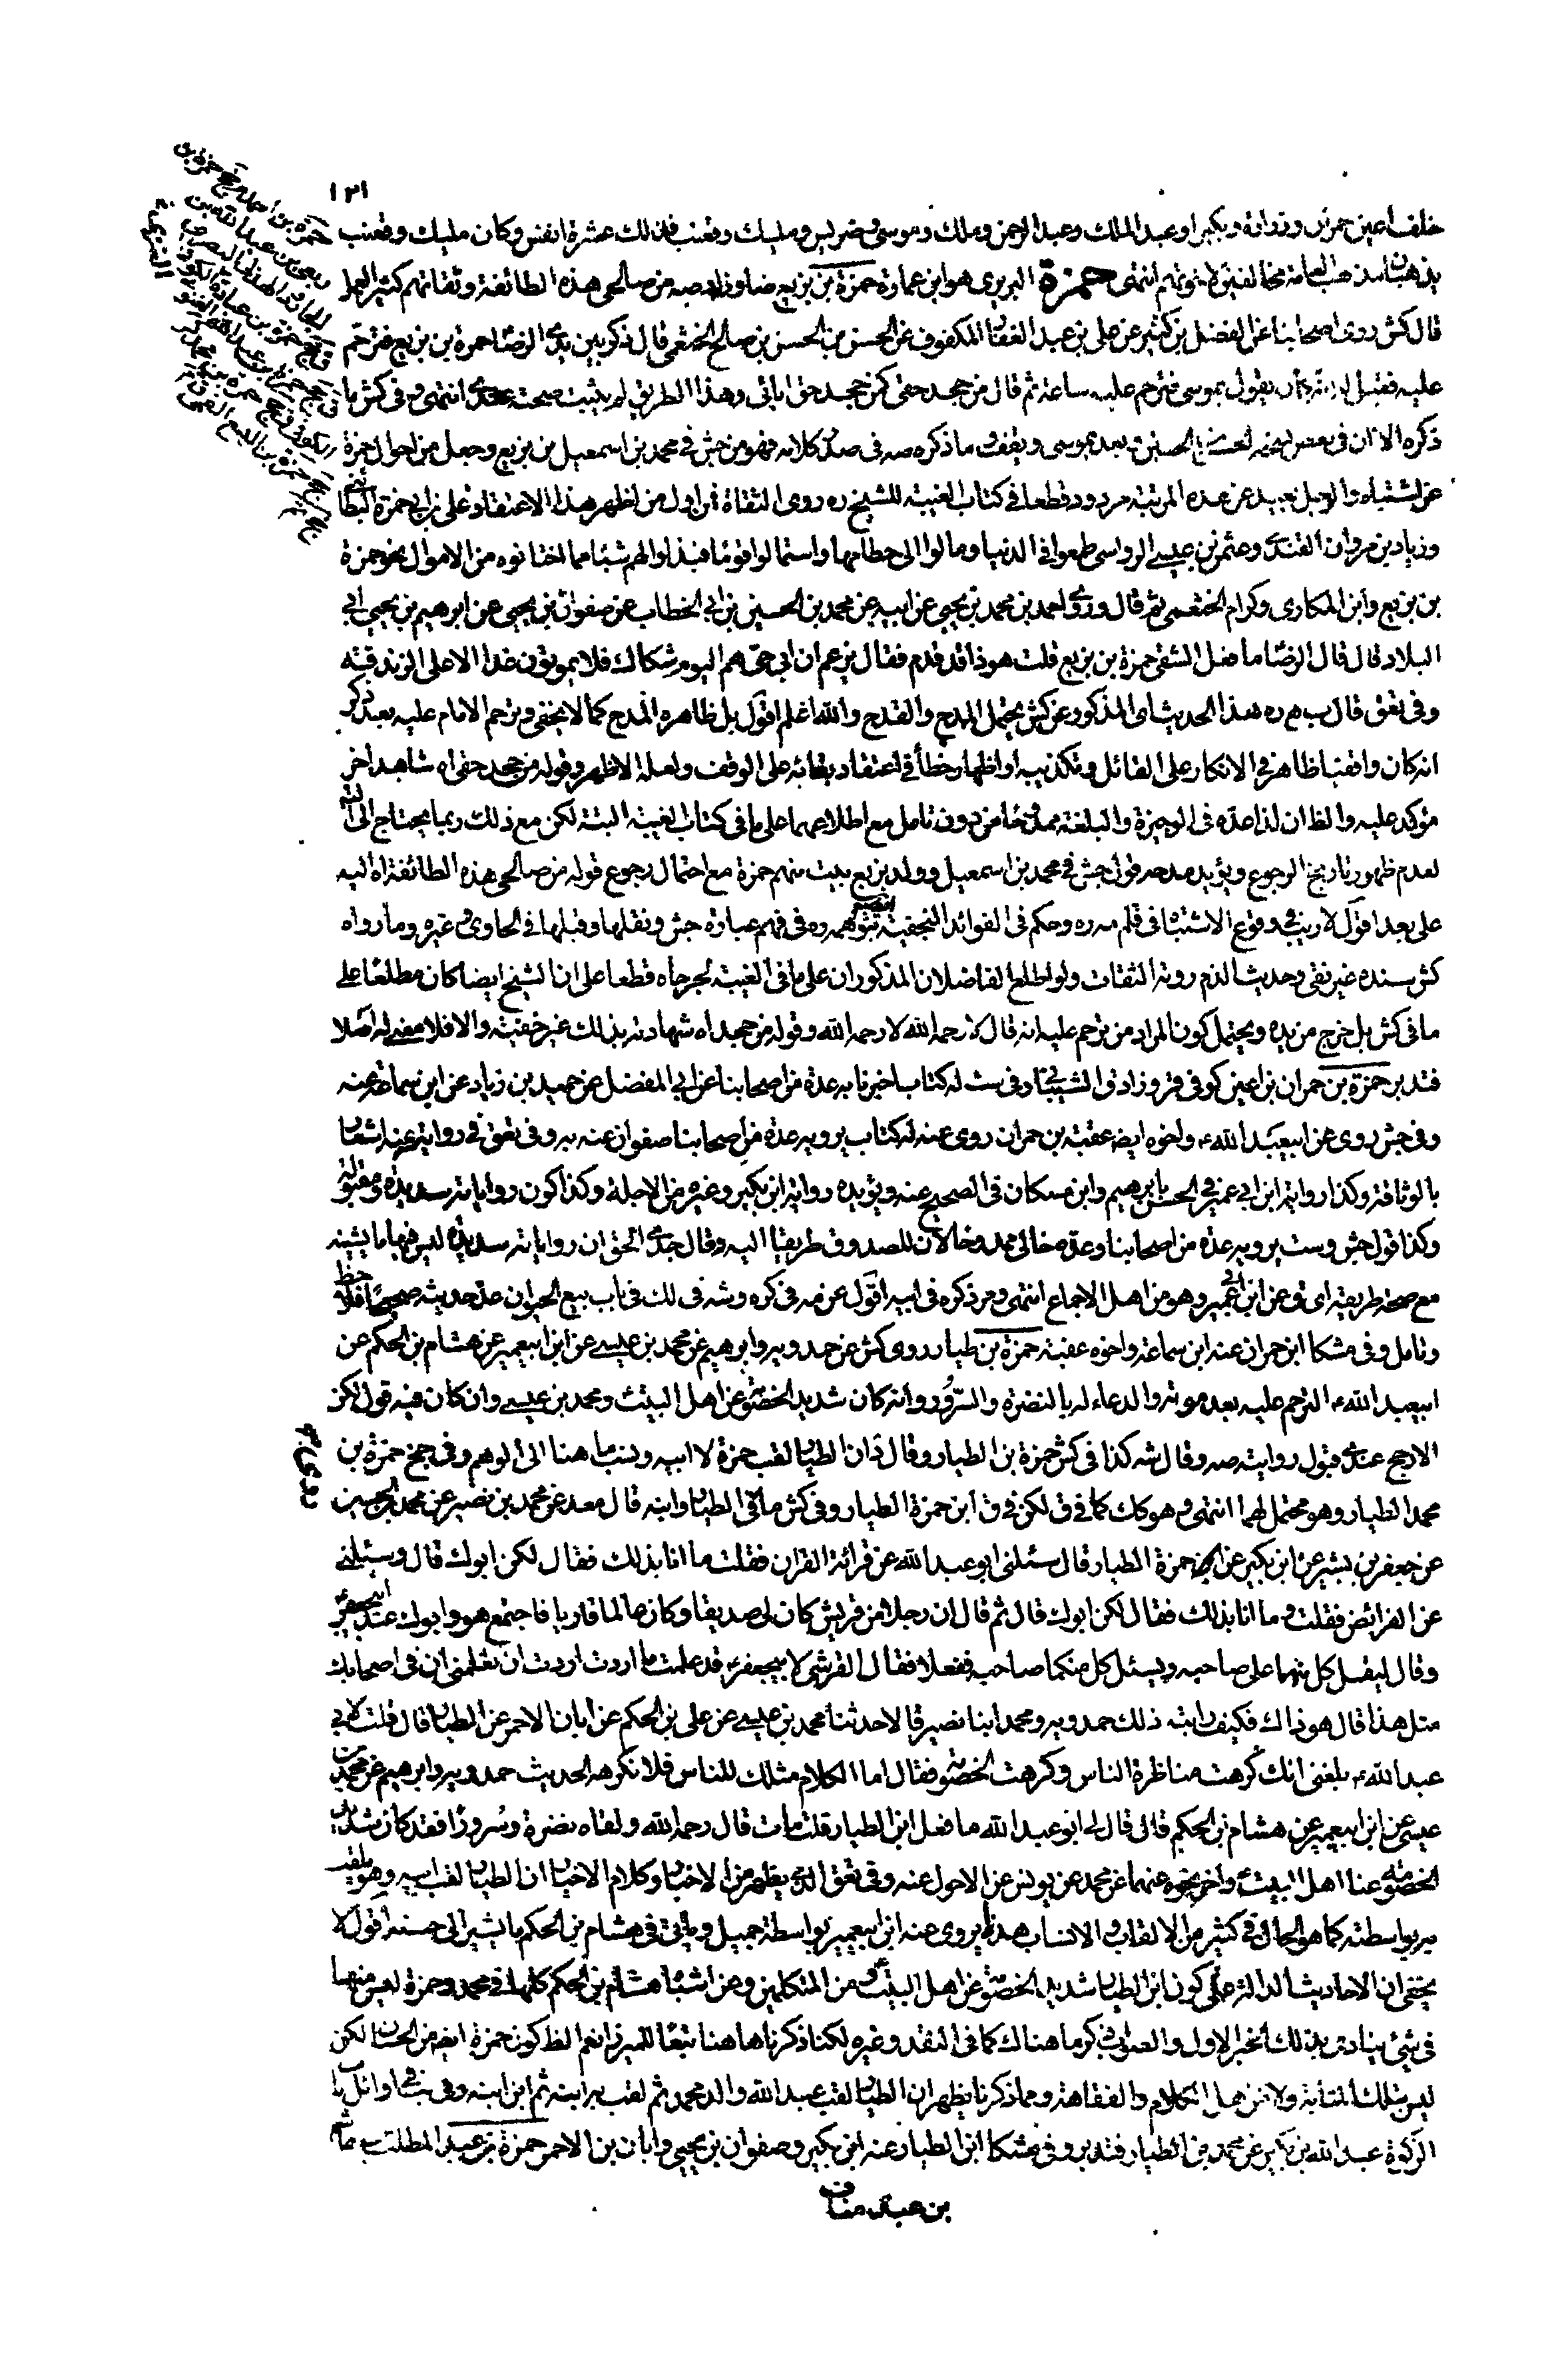 ١٣١
خلف اعين حمران وزرارة وبكيرا وعبد الملك وعبد الرحمن وملك وموسى وضريس ومليك وقعنب فذلك عشرة انفس وكان مليك وقعنب
يذهبان مذهب العامة مخالفين لاخوتهم انتهى حمزة البربرى هو ابن عمارة حمزة بن بزيع ضا وزاد صه من صالحى هذه الطائفة وثقاتهم كثير العمل
قال كش روى اصحابنا عن الفضل بن كثير عن على بن عبد الغفار المكفوف عن الحسن بن الحسن بن صالح الخثعمى قال ذكر بين يدى الرضا حمزة بن بزيع فترحم
عليه فقيل له انه كان يقول بموسى فترحم عليه ساعة ثم قال من جحد حقى كمن جحد حق ابائى وهذا الطريق لم يثبت صحته عندى انتهى وفى كش ما
ذكره الا ان فى بعض بعد موسى ويقف وما ذكره صه فى صدر كلامه فهو من جش فى محمد بن اسمعيل بن بزيع وجعل من احوال حمزة
عن اشتباه والعمل بعيد عن هذه المرتبة مردود قطعا فى كتاب الغيبة للشيخ ره روى الثقاة ان اول من اظهر هذا الاعتقاد على بن ابى حمزة البطائنى
وزياد بن مروان القندى وعثمن بن عيسى الرواسى طمعوا فى الدنيا ومالوا الى حطامها واستمالوا قوما فبذلوا لهم شيئا مما اختانوه من الاموال نحو حمزة
بن بزيع وابن المكارى وكرام الخثعمى ثم قال وروى احمد بن محمد بن يحيى عن ابيه عن محمد بن الحسين بن ابى الخطاب عن صفوان بن يحيى عن ابرهيم بن يحيى ابى
البلاد قال قال الرضا ما فعل الشقى حمزة بن بزيع قلت هو ذا قد قدم فقال يزعم ان ابى حى هم اليوم شكاك فلا يموتون غدا الا على الزندقة
وفى تعق قال ب م ره هذا الحديث اى المذكور عن كش يحتمل المدح والقدح والله اعلم اقول بل ظاهره المدح كما لا يخفى وترحم الامام عليه بعد ذكر
انه كان واقفيا ظاهر فى الانكار على القائل وتكذيبه او اظهار خطأ فى اعتقاد بقائه على الوقف ولعله الاظهر وقوله من جحد حقى اه شاهد اخر
مؤكد عليه والظ ان لذا عده فى الوجيزة والبلغة ممدوحا من دون تامل مع اطلاعهما على ما فى كتاب الغيبة البتة لكن مع ذلك ربما يحتاج الى
لعدم ظهور تاريخ الرجوع ويؤيد مدحه قول جش فى محمد بن اسمعيل وولد بزيع بيت منهم حمزة مع احتمال رجوع قوله من صالحى هذه الطائفة اه اليه
على بعد اقول لا ريب فى وقوع الاشتباه فى قلم مه ره وحكم فى الفوائد النجفية بتوهمه ره فى فهم عبارة جش ونقلها وقبلها فى الحاوى وغيره وما رواه
كش بسنده غير نقى وحديث الذم روته الثقات ولو اطلع الفاضلان المذكوران على ما فى الغيبة لجرحاه قطعا على ان الشيخ ايضا كان مطلعا على
ما فى كش بل خرج من يده ويحتمل كون المراد من ترحم عليه انه قال لا رحمه الله لا رحمه الله وقوله من جحد اه شهادته بذلك غير خفية والا فلا معنى له اصلا
فتدبر حمزة بن حمران بن اعين كوفى قر وزاد ق الشيبانى وفى ست له كتاب اخبرنا به عدة من اصحابنا عن ابى المفضل عن حميد بن زياد عن ابن سماعة عنه
وفى جش روى عن ابيعبد الله ع واخوه ايضا عقبة بن حمران روى عنه له كتاب يرويه عدة من اصحابنا صفوان عنه به وفى تعق فى رواية عنه اشعار
بالوثاقة وكذا رواية ابن ابى عمير وابن مسكان فى الصحيح عنه ويؤيده رواية ابن بكير وغيره من الاجلة وكذا كون رواياته سديدة ومقبولة
وكذا قول جش وست يرويه عدة من اصحابنا وعده خالى ممدوحا لان للصدوق طريقا اليه وقال جدى الحق ان رواياته سديدة ليس فيها ما يشينه
مع صحة طريقه اى ق عن ابن ابى عمير وهو من اهل الاجماع انتهى ومر ذكره فى ابيه اقول عن مه فى كره وشه فى لك فى باب بيع الحيوان عد حديثه صحيحا فلاحظ
وتامل وفى مشكا ابن حمران عنه ابن سماعة واخوه عقبة حمزة بن طيار روى كش عن حمدويه وابرهيم عن محمد بن عيسى عن ابن ابيعمير عن هشام بن الحكم عن
ابيعبد الله ع الترحم عليه بعد موته والدعاء له بالنضرة والسرور وانه كان شديد الخصومة عن اهل البيت ومحمد بن عيسى وان كان فيه قول لكن
الارجح عندى قبول روايته صه وقال شه كذا فى كش حمزة بن الطيار وقال د ان الطيار لقب حمزة لا ابيه ونسب ما هنا الى الوهم وفى جخ حمزة بن
محمد الطيار وهو محتمل لهما انتهى وهو كك كما فى ق لكن فى ق ابن حمزة الطيار وفى كش ما فى الطيار وابنه قال معد عن محمد بن نصير عن محمد بن الحسين
عن جعفر بن بشير عن ابن بكير عن حمزة الطيار قال سئلنى ابو عبد الله عن قرائة القران فقلت ما انا بذلك فقال لكن ابوك قال وسئلنى
عن الفرائض فقلت وما انا بذلك فقال لكن ابوك قال ثم قال ان رجلا من قريش كان لى صديقا وكان عالما قاريا فاجتمع هو وابوك عند ابيجعفر
وقال ليقبل كل منهما على صاحبه ويسئل كل منكما صاحبه ففعلا فقال القرشى لابيجعفر ع قد علمت ما اردت اردت ان تعلمنى ان فى اصحابك
مثل هذا قال هو ذاك فكيف رايته ذلك حمدويه ومحمد ابنا نصير قالا حدثنا محمد بن عيسى عن على بن الحكم عن ابان الاحمر عن الطيار قال قلت لابى
عبد الله ع بلغنى انك كرهت مناظرة الناس وكرهت الخصومة فقال اما كلام مثلك للناس فلا نكرهه الحديث حمدويه وابرهيم عن محمد بن
عيسى عن ابن ابيعمير عن هشام بن الحكم قال قال لى ابو عبد الله ما فعل ابن الطيار قلت مات قال رحمه الله ولقاه نضرة وسرورا فقد كان شديد
الخصومة عنا اهل البيت واخر نحوه عنهما عن محمد عن يونس عن الاحول عنه وفى تعق الذى يظهر من الاخبار وكلام الاخيار ان الطيار لقب ابيه وهو يلقب
به بواسطته كما هو الحال فى كثير من الالقاب والانساب هذا يروى عنه ابن ابيعمير بواسطة جميل وياتى فى هشام بن الحكم ما يشير الى حسنه اقول لا
يخفى ان الاحاديث الدالة على كون ابن الطيار شديد الخصومة عن اهل البيت ع وعن المتكلمين وعن اشباه هشام بن الحكم كلها فى محمد وحمزة ليس منها
فى شىء ينادى بذلك الخبر الاول والصواب ذكر ما هناك كما فى النقد وغيره لكنا ذكرناها هنا تبعا للميرزا نعم الظ كون حمزة ايضا من الحسان لكن
ليس بتلك المثابة ولا من اهل الكلام والفقاهة ومما ذكرنا يظهر ان الطيار لقب عبد الله والد محمد ثم لقب به ابنه ثم ابن ابنه وفى يب فى اوائل باب
الزكوة عبد الله بن بكير عن محمد بن الطيار فتدبر وفى مشكا ابن الطيار عنه ابن بكير وصفوان بن يحيى وابان بن الاحمر حمزة بن عبد المطلب بن هاشم
بن عبد مناف